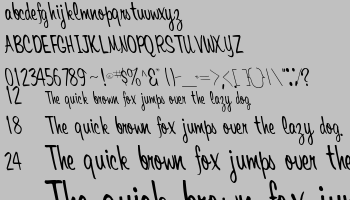 abcdefghijklmnopqrstuvwxyz
ABCDEFGHIJKLMNOPQRSTUVWXYZ
0123456789~!@#$%^&*()-_+=><[]{}/\"':;,/?
12 The quick brown fox jumps over the lazy dog
18 The quick brown fox jumps over the lazy dog.
24 The quick brown fox jumps over the
The quick brown fox jum